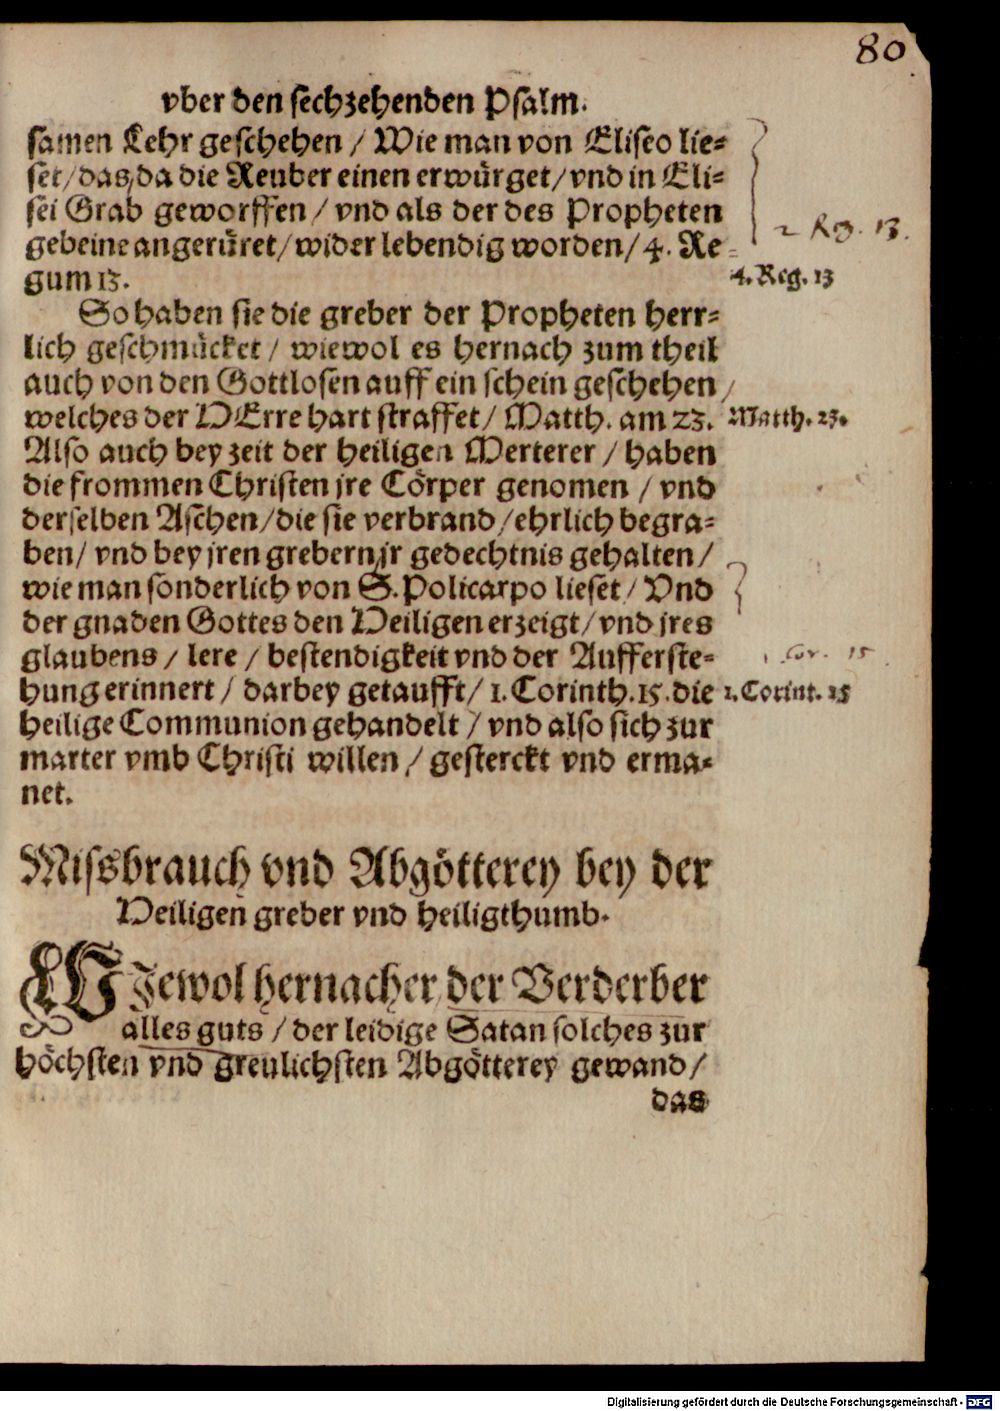 80
vber den sechzehenden Psalm.
samen Lehr geschehen / Wie man von Eliseo lie=
set/das da die Reuber einen erwürget/vnd in Eli=
sei Grab geworffen / vnd als der des Propheten
gebeine angerüret/wider lebendig worden/4. Re=
gum 13.
2 Rg. 13.
4. Reg. 13
So haben sie die greber der Propheten herr=
lich geschmücket / wiewol es hernach zum theil
auch von den Gottlosen auff ein schein geschehen/
welches der HErre hart straffet/ Matth. am 23.
Matth. 23.
Also auch bey zeit der heiligen Merterer / haben
die frommen Christen jre Cörper genomen / vnd
derselben Aschen/die sie verbrand/ehrlich begra=
ben/ vnd bey jren grebern jr gedechtnis gehalten/
wie man sonderlich von S. Policarpo lieset/ Vnd
der gnaden Gottes den Heiligen erzeigt/vnd jres
glaubens / lere / bestendigkeit vnd der Aufferste=
hung erinnert / darbey getaufft/ 1. Corinth. 15. die
1 Cor. 15
1. Corint. 15
heilige Communion gehandelt / vnd also sich zur
marter vmb Christi willen / gesterckt vnd erma=
net.
Missbrauch vnd Abgötterey bey der
Heiligen greber vnd heiligthumb.
WJewol hernacher der Verderber
alles guts / der leidige Satan solches zur
höchsten vnd greulichsten Abgötterey gewand/
das
Digitalisierung gefördert durch die Deutsche Forschungsgemeinschaft - DFG